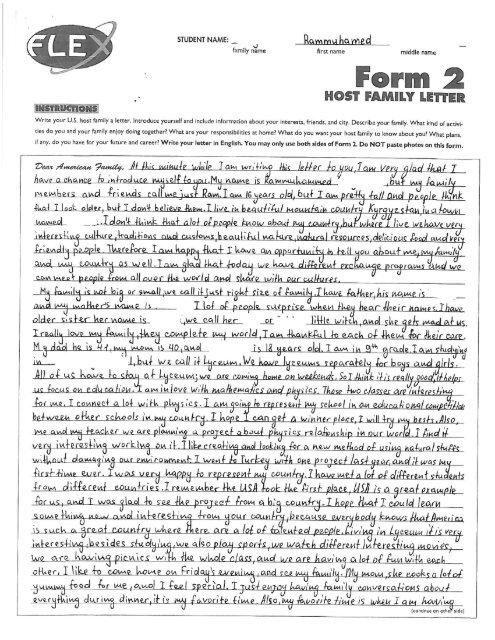 FLEX
STUDENT NAME:
Rammuhamed
family name first name middle name
Form 2
HOST FAMILY LETTER
INSTRUCTIONS
Write your U.S. host family a letter. Introduce yourself and include information about your interests, friends, and city. Describe your family. What kind of activi-
ties do you and your family enjoy doing together? What are your responsibilities at home? What do you want your host family to know about you? What plans,
if any, do you have for your future and career? Write your letter in English. You may only use both sides of Form 2. Do NOT paste photos on this form.
Dear American Family, At this minute while I am writing this letter to you, I am very glad that I
have a chance to introduce myself to you. My name is Rammuhammed , but my family
members and friends call me just Ram. I am 16 years old, but I am pretty tall and people think
that I look older, but I don't believe them. I live in beautiful mountain country Kyrgyzstan, in a town
named . I don't think that alot of people know about my country, but where I live we have very
interesting culture, traditions and customs, beautiful nature, natural resources, delicious food and very
friendly people. Therefore I am happy that I have an opportunity to tell you about me, my family
and my country as well. I am glad that today we have different exchange programs and we
can meet people from all over the world and share with our cultures.
My family is not big or small, we call it just right size of family. I have father, his name is
and my mother's name is . I lot of people surprise when they hear their names. I have
older sister her name is , we call her or " little witch, and she gets mad at us.
I really love my family, they complete my world, I am thankful to each of them for their care.
My dad he is 41, my mom is 40, and is 18 years old. I am in 9th grade. I am studying
in , but we call it Lyceum. We have lyceums separately for boys and girls.
All of us have to stay at Lyceum; we are coming home on weekends. So I think it is really good, it helps
us focus on education. I am in love with mathematics and physics. These two classes are interesting
for me. I connect a lot with physics. I am going to represent my school in our educational competition
between other schools in my country. I hope I can get a winner place, I will try my bests. Also,
me and my teacher we are planning a project about physics relationship in our world. I find it
very interesting working on it. I like creating and looking for a new method of using natural stuffs
without damaging our environment. I went to Turkey with one project last year, and it was my
first time ever. I was very happy to represent my country. I have met a lot of different students
from different countries. I remember the USA took the first place, USA is a great example
for us, and I was glad to see the project from a big country. I hope that I could learn
something new and interesting from your country, because everybody knows that America
is such a great country where there are a lot of talented people. Living in Lyceum it is very
interesting, besides studying, we also play sports, we watch different interesting movies,
we are having picnics with the whole class, and we are having a lot of fun with each
other. I like to come home on Friday's evening, and see my family. My mom, she cooks a lot of
yummy food for me, and I feel special. I just enjoy having family conversations about
everything during dinner, it is my favorite time. Also, my favorite time is when I am having
(continue on other side)